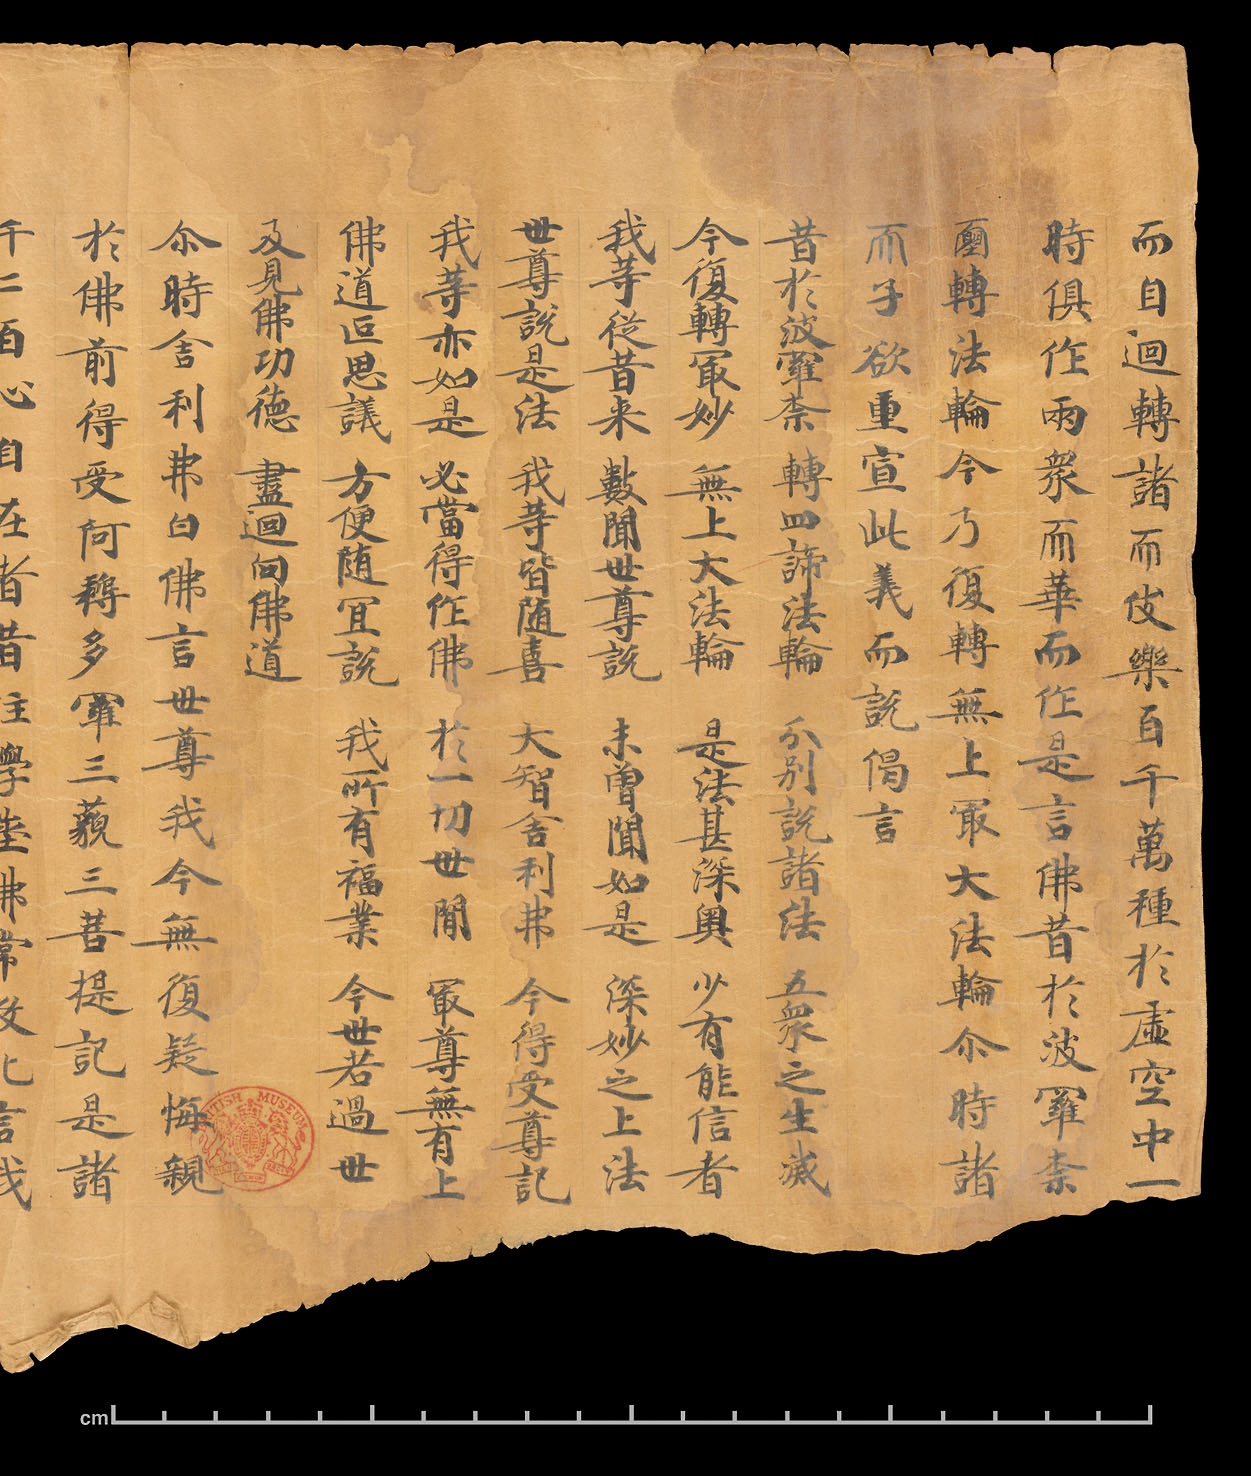 而自迴轉諸𠀑伎樂百千萬種於虛空中一
時俱作雨衆𠀑華而作是言佛昔於波羅柰
𡔈轉法輪今乃復轉無上冣大法輪尒時諸
𠀑子欲重宣此義而說偈言
昔於波羅柰 轉四諦法輪 分別說諸法 五衆之生滅
今復轉冣妙 無上大法輪 是法甚深奧 少有能信者
我等從昔來 數聞世尊說 未曾聞如是 深妙之上法
世尊說是法 我等皆随喜 大智舍利弗 今得受尊記
我等亦如是 必當得作佛 於一切世閒 冣尊無有上
佛道叵思議 方便随冝說 我所有福業 今世若過世
及見佛功德 盡迴向佛道
尒時舍利弗白佛言世尊我今無復疑悔親
於佛前得受阿耨多羅三藐三菩提記是諸
千二百心自在者昔住學埊佛常教化言我
BRITISH MUSEUM
cm